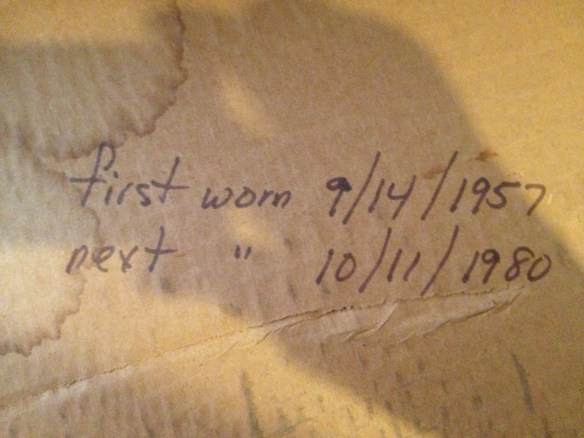 first worn 9/14/1957
next " 10/11/1980